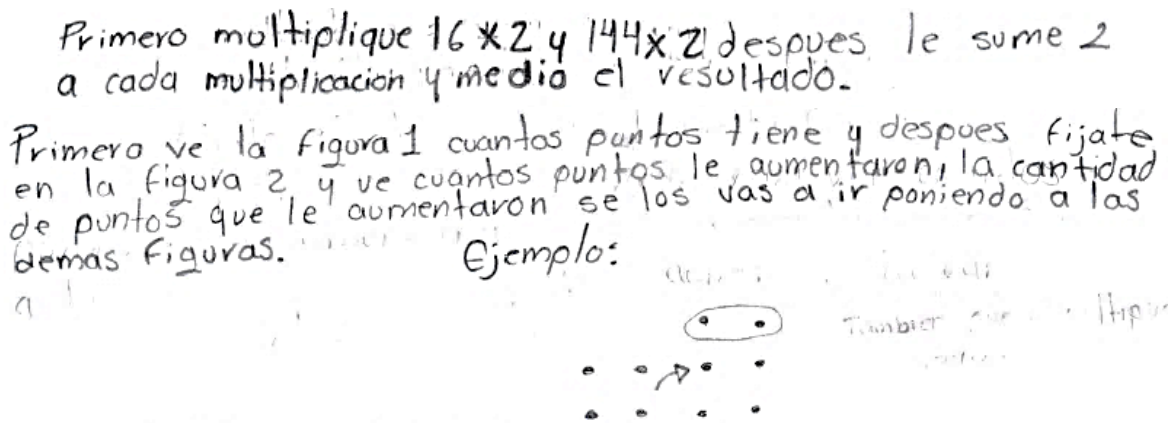 Primero moltiplique 16x2 y 144x2 despues le sume 2
a cada multiplicacion y me dio el resultado.
Primero ve la figura 1 cuantos puntos tiene y despues fijate
en la figura 2 y ve cuantos puntos le aumentaron, la cantidad
de puntos que le aumentaron se los vas a ir poniendo a las
demas figuras. Ejemplo: